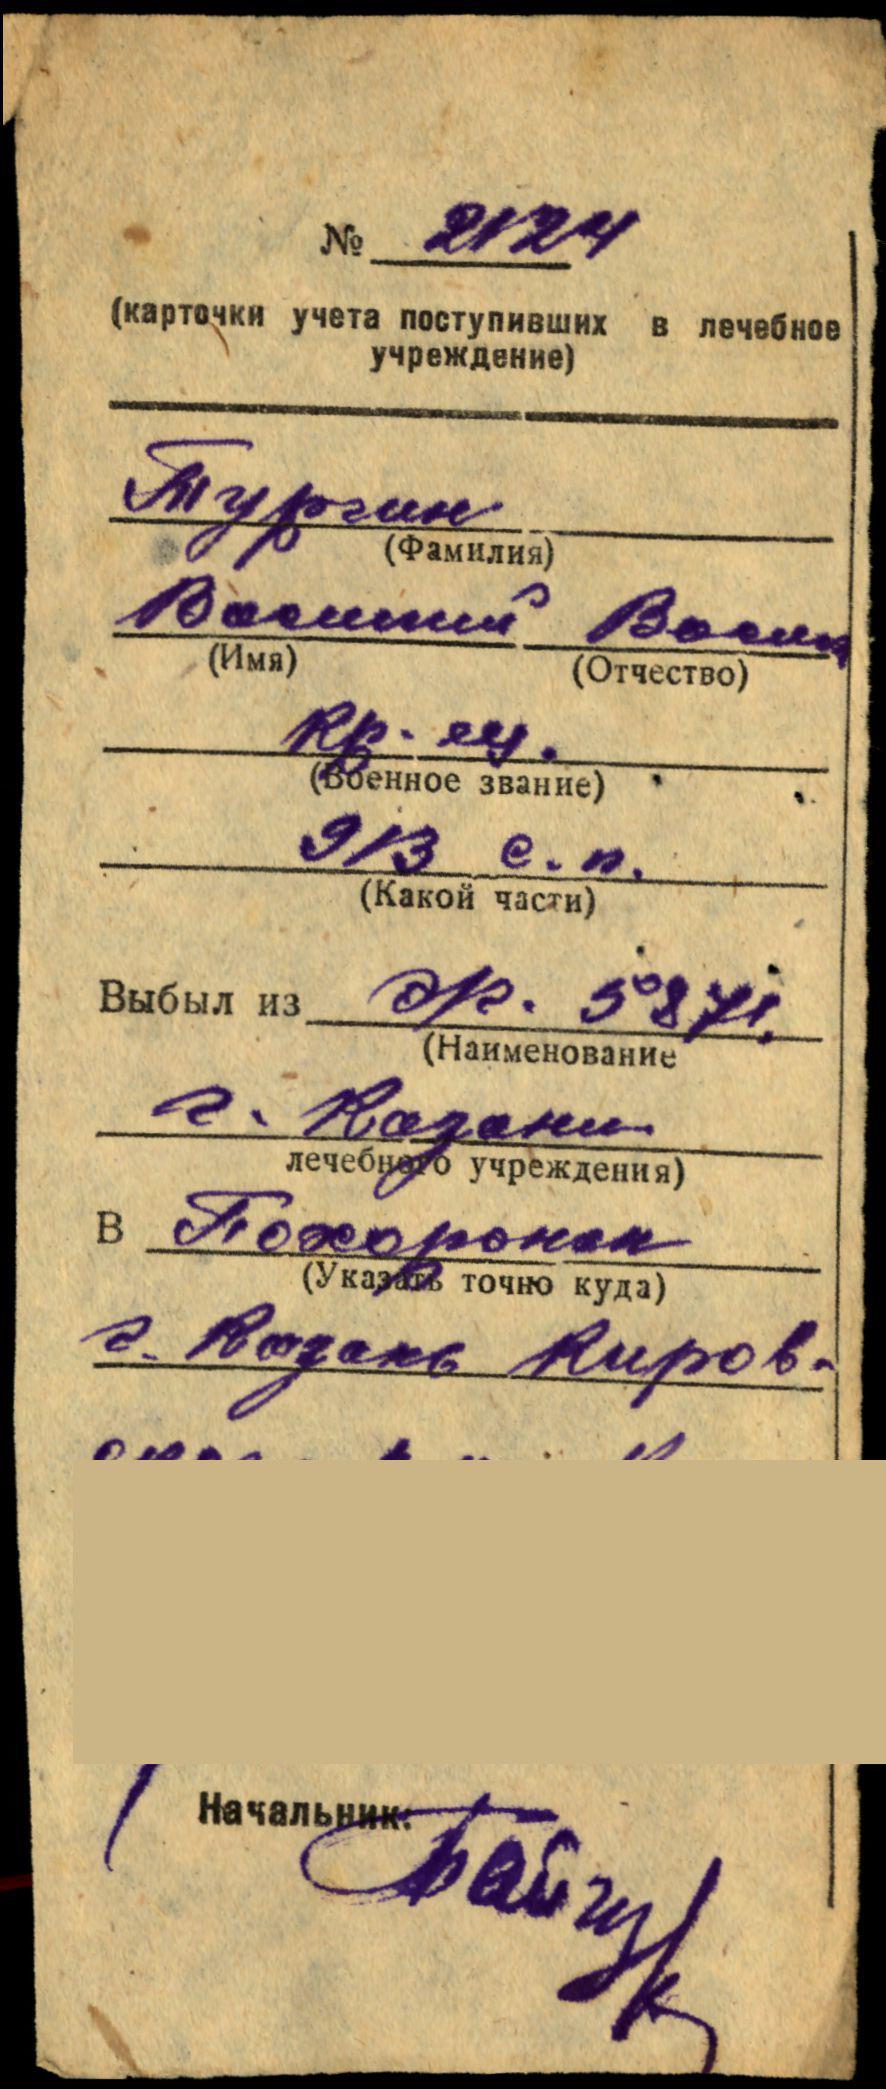 № 2124
(карточки учета поступивших в лечебное
учреждение)
Тургин
(Фамилия)
Василий Васил
(Имя) (Отчество)
кр-ец.
(Военное звание)
913 с.п.
(Какой части)
Выбыл из эг. 5871.
(Наименование
г. Казани
лечебного учреждения)
В Похоронен
(Указать точно куда)
г. Казань Киров-
Начальник: